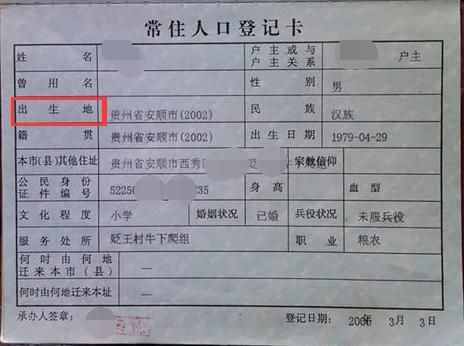 常住人口登记卡
姓名 户主或与户主关系 户主
曾用名 性别 男
出生地 贵州省安顺市(2002) 民族 汉族
籍贯 贵州省安顺市(2002) 出生日期 1979-04-29
本市(县)其他住址 贵州省安顺市西秀 宗教信仰
公民身份证件编号 52250 35 身高 血型
文化程度 小学 婚姻状况 已婚 兵役状况 未服兵役
服务处所 贬王村牛下爬组 职业 粮农
何时由何地迁来本市(县) —
何时由何地迁来本址 —
承办人签章: 登记日期: 2006年3月3日